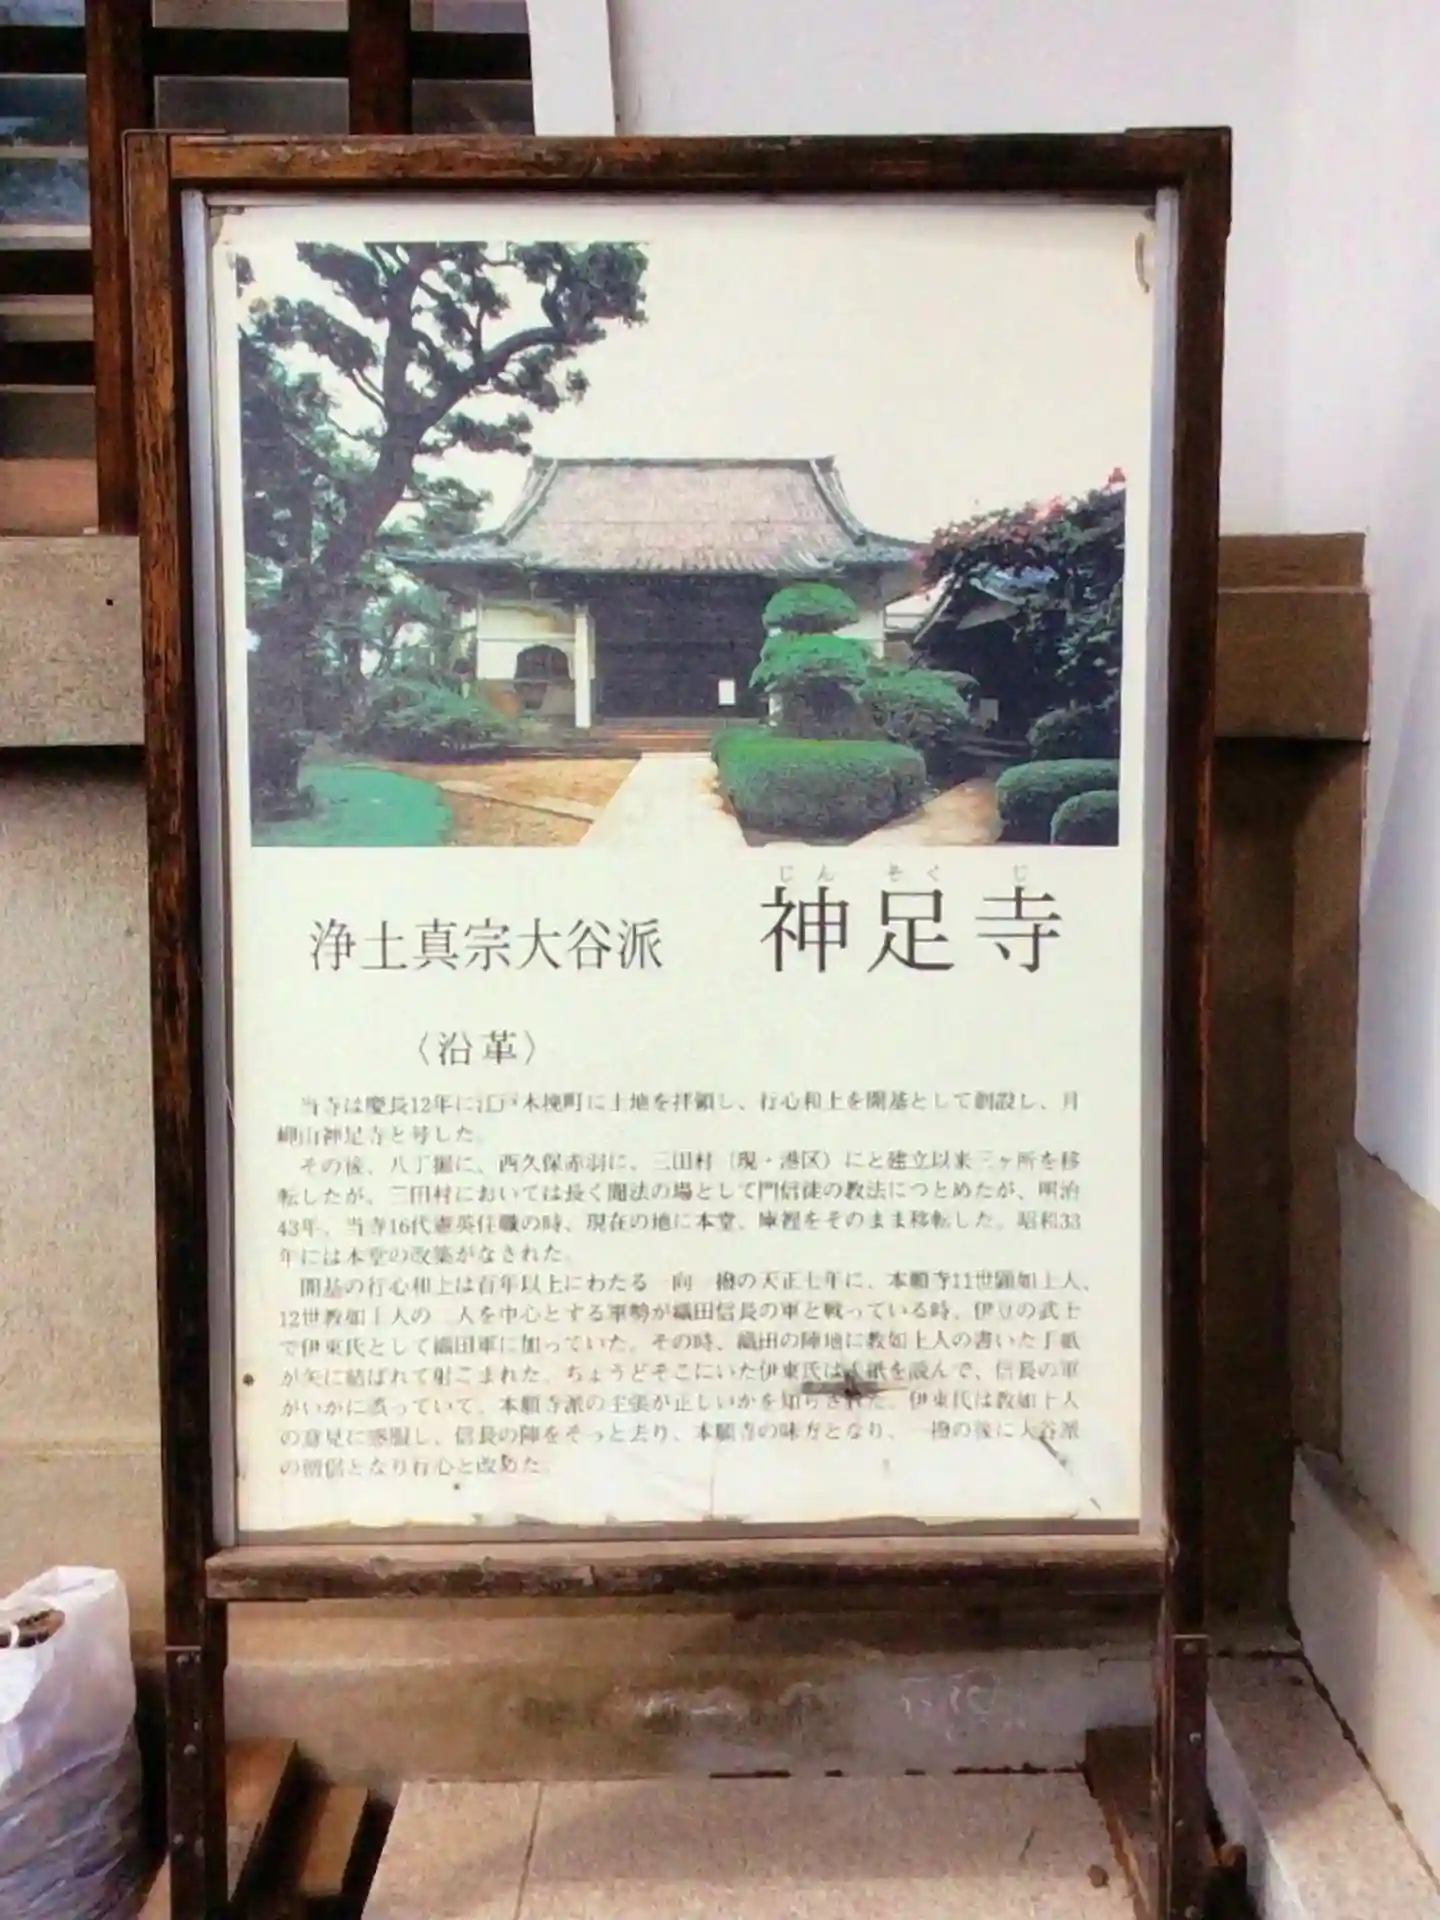 じんそくじ
浄土真宗大谷派 神足寺
〈沿革〉
当寺は慶長12年に江戸木挽町に土地を拝領し、行心和上を開基として創設し、月
岬山神足寺と号した。
その後、八丁堀に、西久保赤羽に、三田村（現・港区）にと建立以来三ヶ所を移
転したが、三田村においては長く聞法の場として門信徒の教法につとめたが、明治
43年、当寺16代憲英住職の時、現在の地に本堂、庫裡をそのまま移転した。昭和33
年には本堂の改築がなされた。
開基の行心和上は百年以上にわたる一向一揆の天正七年に、本願寺11世顕如上人、
12世教如上人の二人を中心とする軍勢が織田信長の軍と戦っている時、伊豆の武士
で伊東氏として織田軍に加っていた。その時、織田の陣地に教如上人の書いた手紙
が矢に結ばれて射こまれた。ちょうどそこにいた伊東氏は手紙を読んで、信長の軍
がいかに誤っていて、本願寺派の主張が正しいかを知らされた。伊東氏は教如上人
の意見に感服し、信長の陣をそっと去り、本願寺の味方となり、一揆の後に大谷派
の僧侶となり行心と改めた。